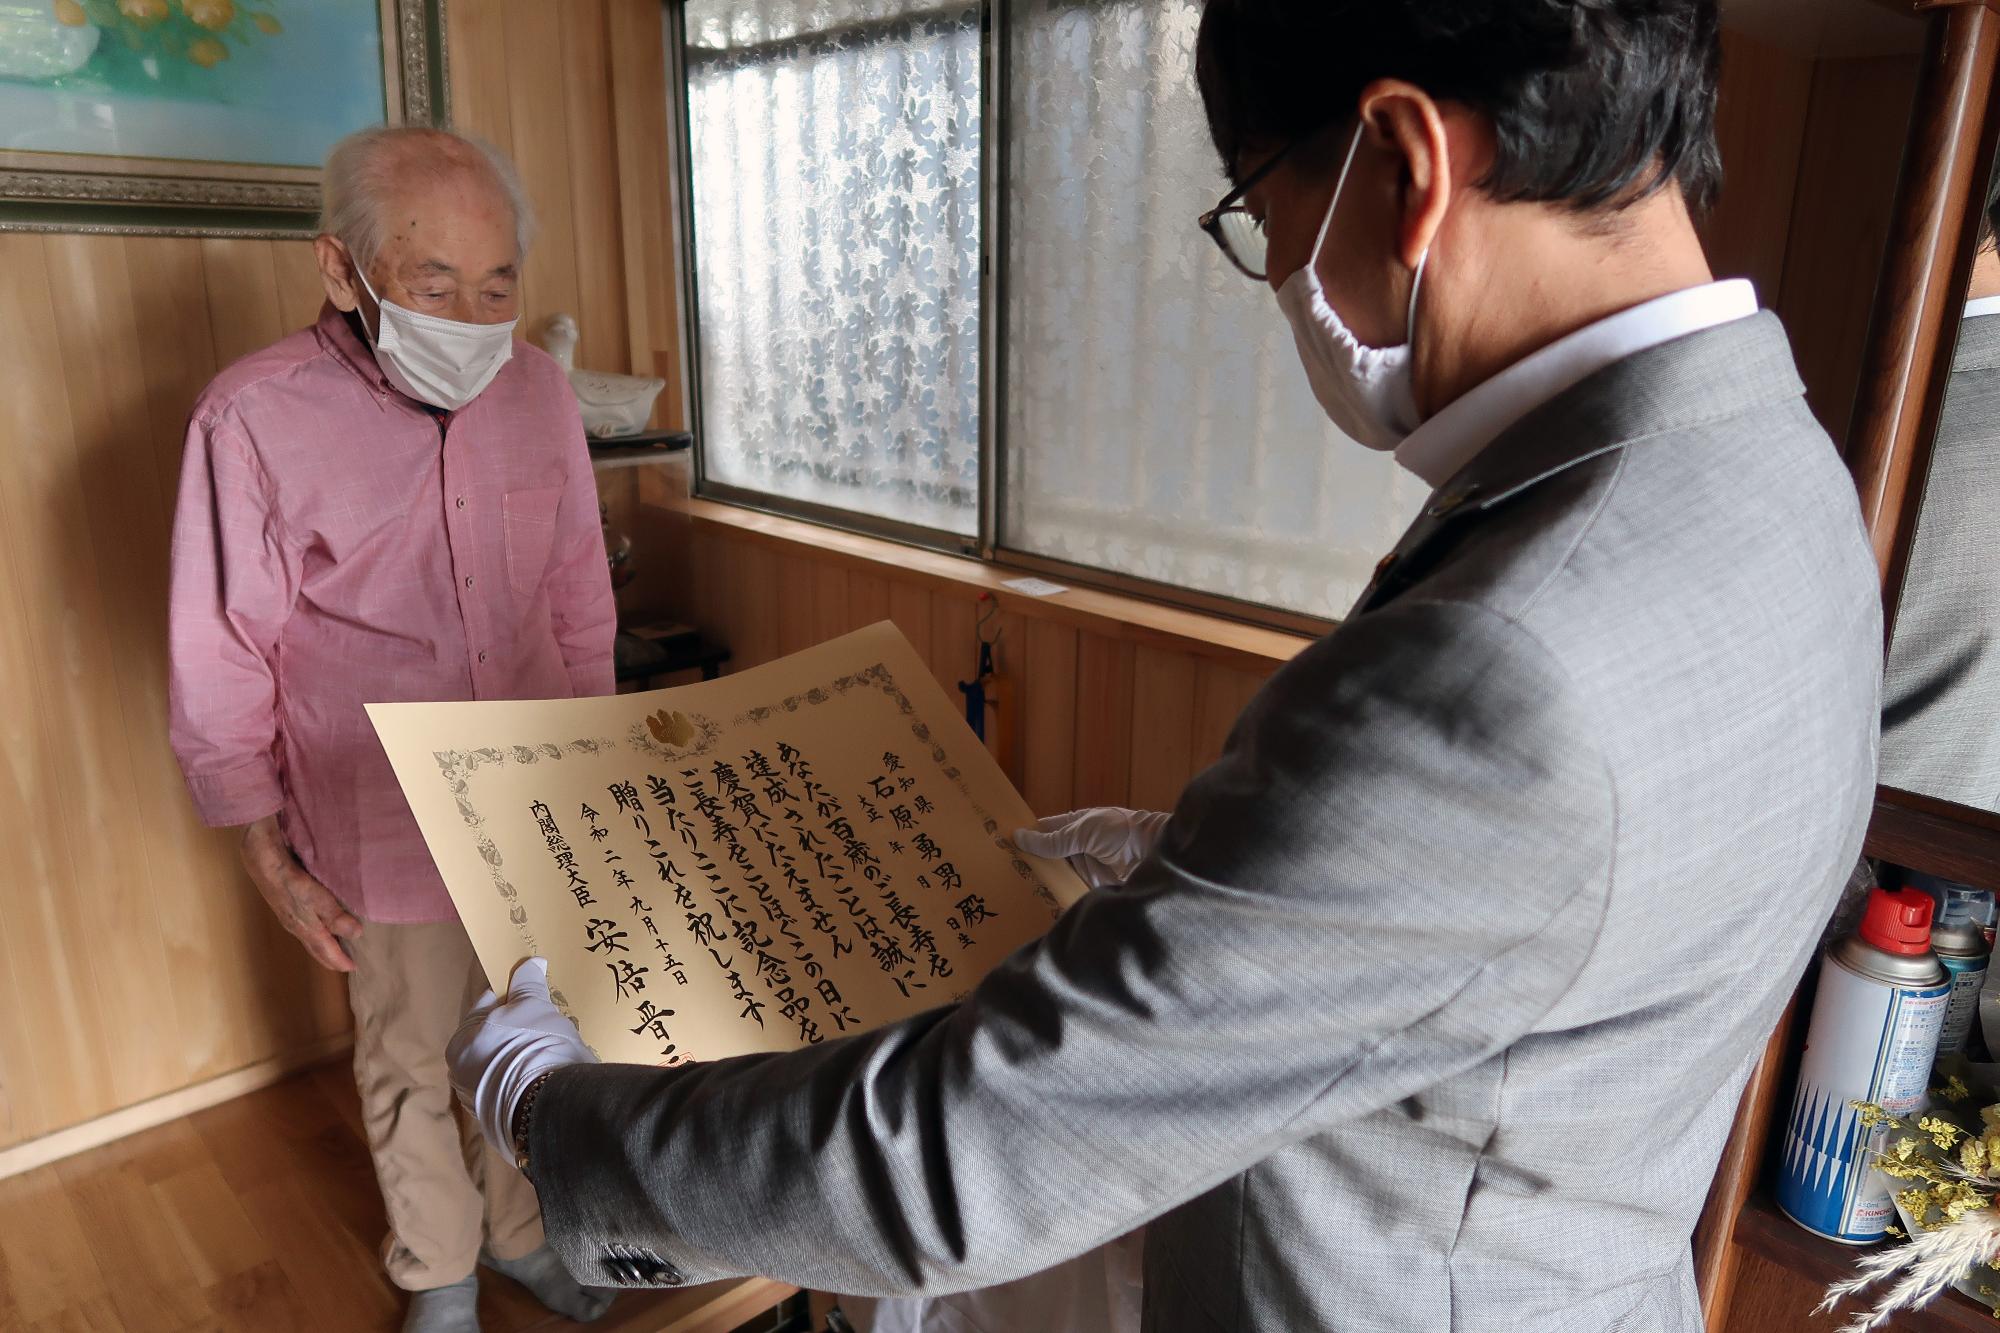 愛知県
石原勇男殿
大正 年 月 日生
あなたが百歳のご長寿を
達成されたことは誠に
慶賀にたえません
ご長寿をことほぐこの日に
当たりここに記念品を
贈りこれを祝します
令和二年九月十五日
内閣総理大臣 安倍晋三
KINCHO
450mL